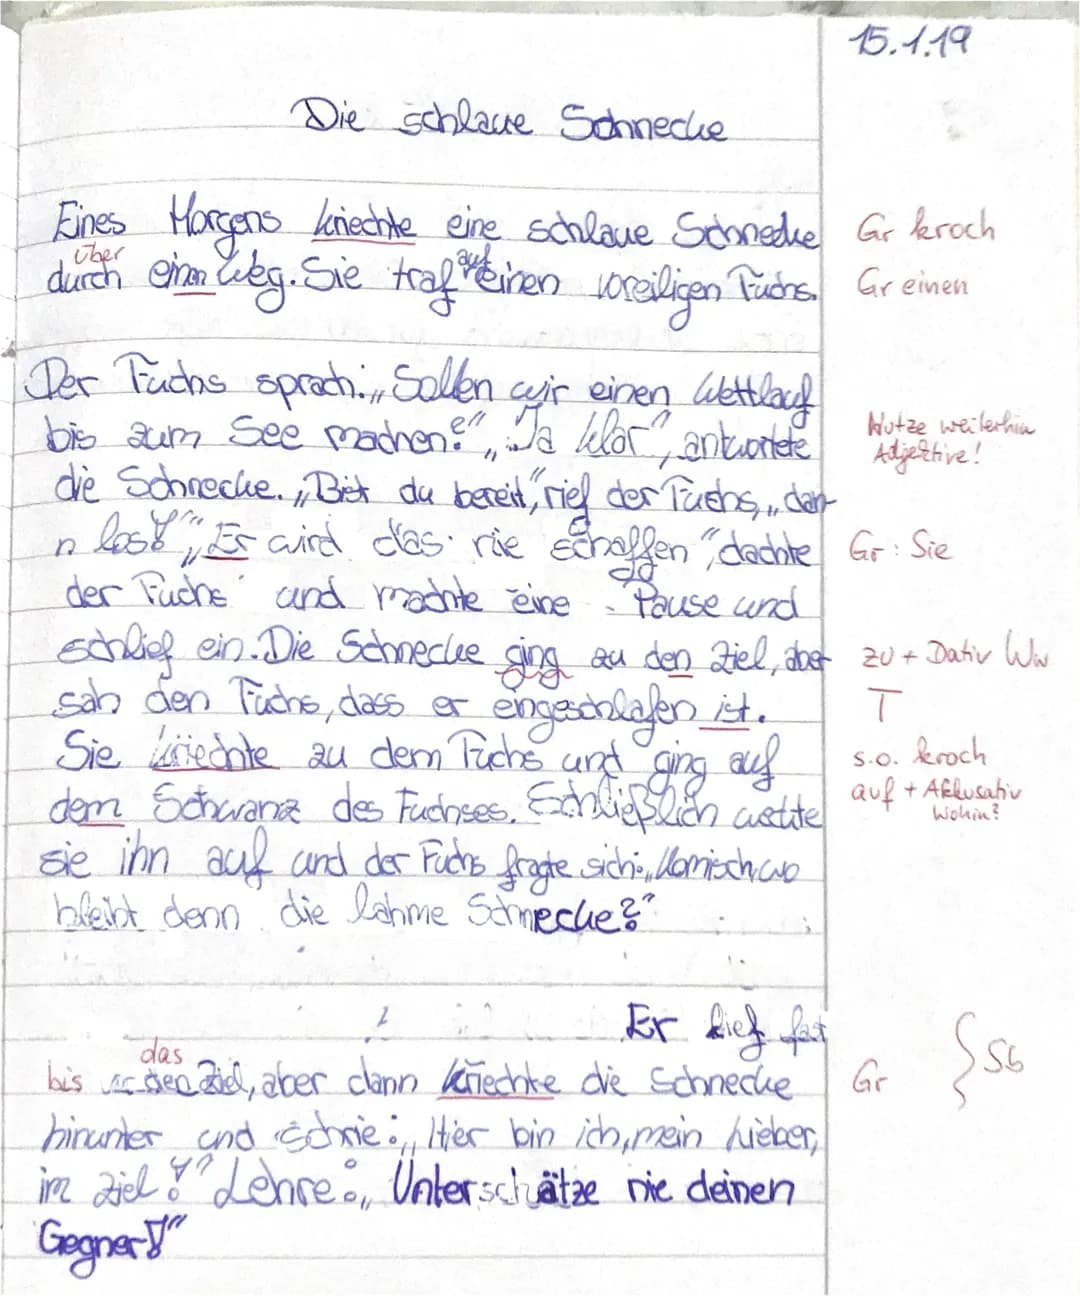 15.1.19
Die schlaue Schnecke
Eines Morgens kriechte eine schlaue Schnecke Gr kroch
über auf
durch einen Weg. Sie traf einen voreiligen Fuchs. Gr einen
Der Fuchs sprach: „Sollen wir einen Wettlauf
bis zum See machen?" „Ja klar", antwortete Nutze weiterhin
die Schnecke. „Bist du bereit," rief der Fuchs, „dan- Adjektive!
n los!" „Er wird das nie schaffen", dachte Gr: Sie
der Fuchs und machte eine Pause und
schlief ein. Die Schnecke ging zu den Ziel, aber zu + Dativ Ww
sah den Fuchs, dass er engeschlafen ist. T
Sie kriechte zu dem Fuchs und ging auf s.o. kroch
dem Schwanz des Fuchses. Schließlich weckte auf + Akkusativ
Wohin?
sie ihn auf und der Fuchs fragte sich: „Komisch, wo
bleibt denn die lahme Schnecke?"
Er lief fast
das
bis den Ziel, aber dann kriechte die Schnecke Gr } Sb
hinunter und schrie: „Hier bin ich, mein Lieber,
im Ziel!" Lehre: „Unterschätze nie deinen
Gegner!"